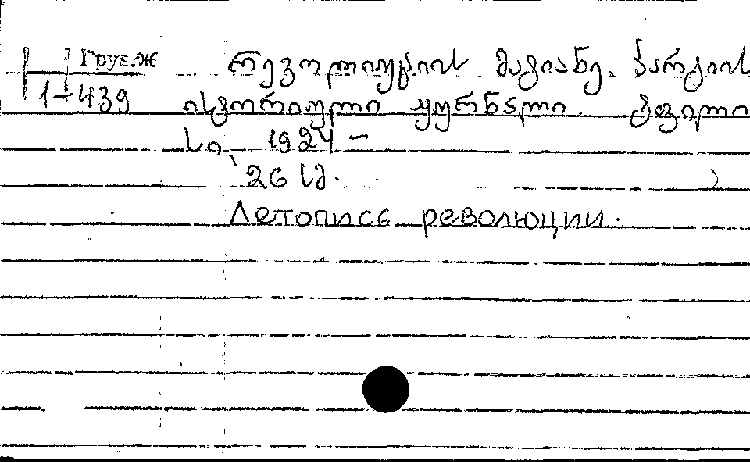 Груз.ж რევოლიუციის მატიანე. პარტიის
1-439 ისტორიული ჟურნალი. ტფილი
სი, 1924 —
26 სმ.
Летопись революции.